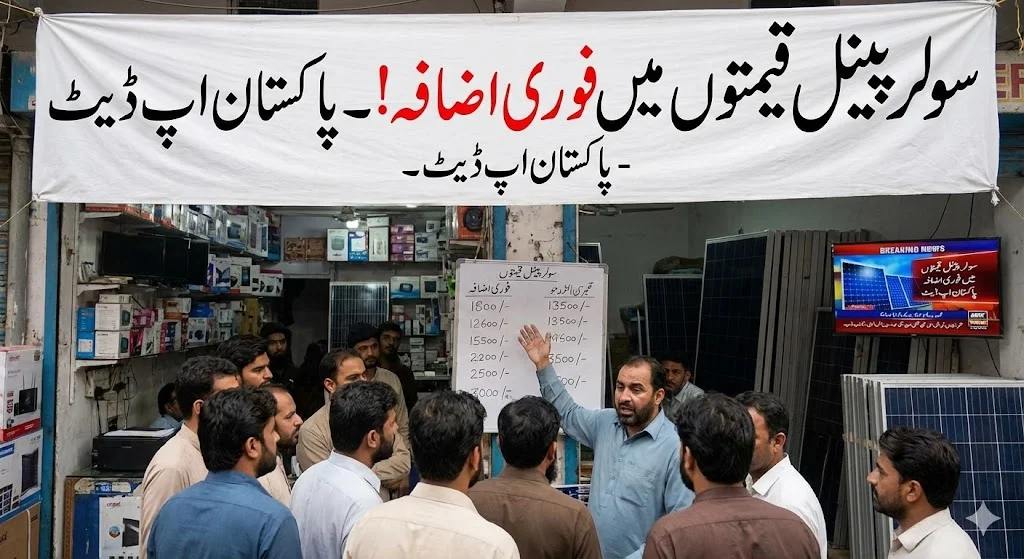 سولر پینل قیمتوں میں فوری اضافہ! ۔ پاکستان اپ ڈیٹ
- پاکستان اپ ڈیٹ ۔
سولر پینل قیمتوں
فوری اضافہ
1800/- 13500/-
12600/- 13500/-
15500/-
2200/- 3500/-
2500/-
3000/-
BREAKING NEWS
سولر پینل قیمتوں
میں فوری اضافہ
پاکستان اپ ڈیٹ